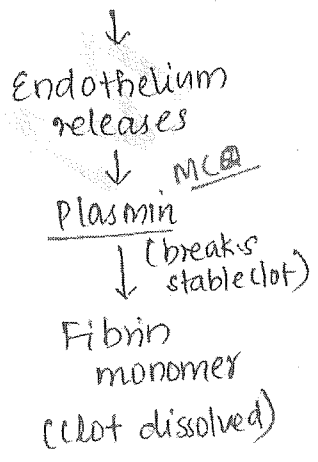 ↓
Endothelium
releases
↓
MCQ
Plasmin
↓ (breaks
stable clot)
Fibrin
monomer
(clot dissolved)